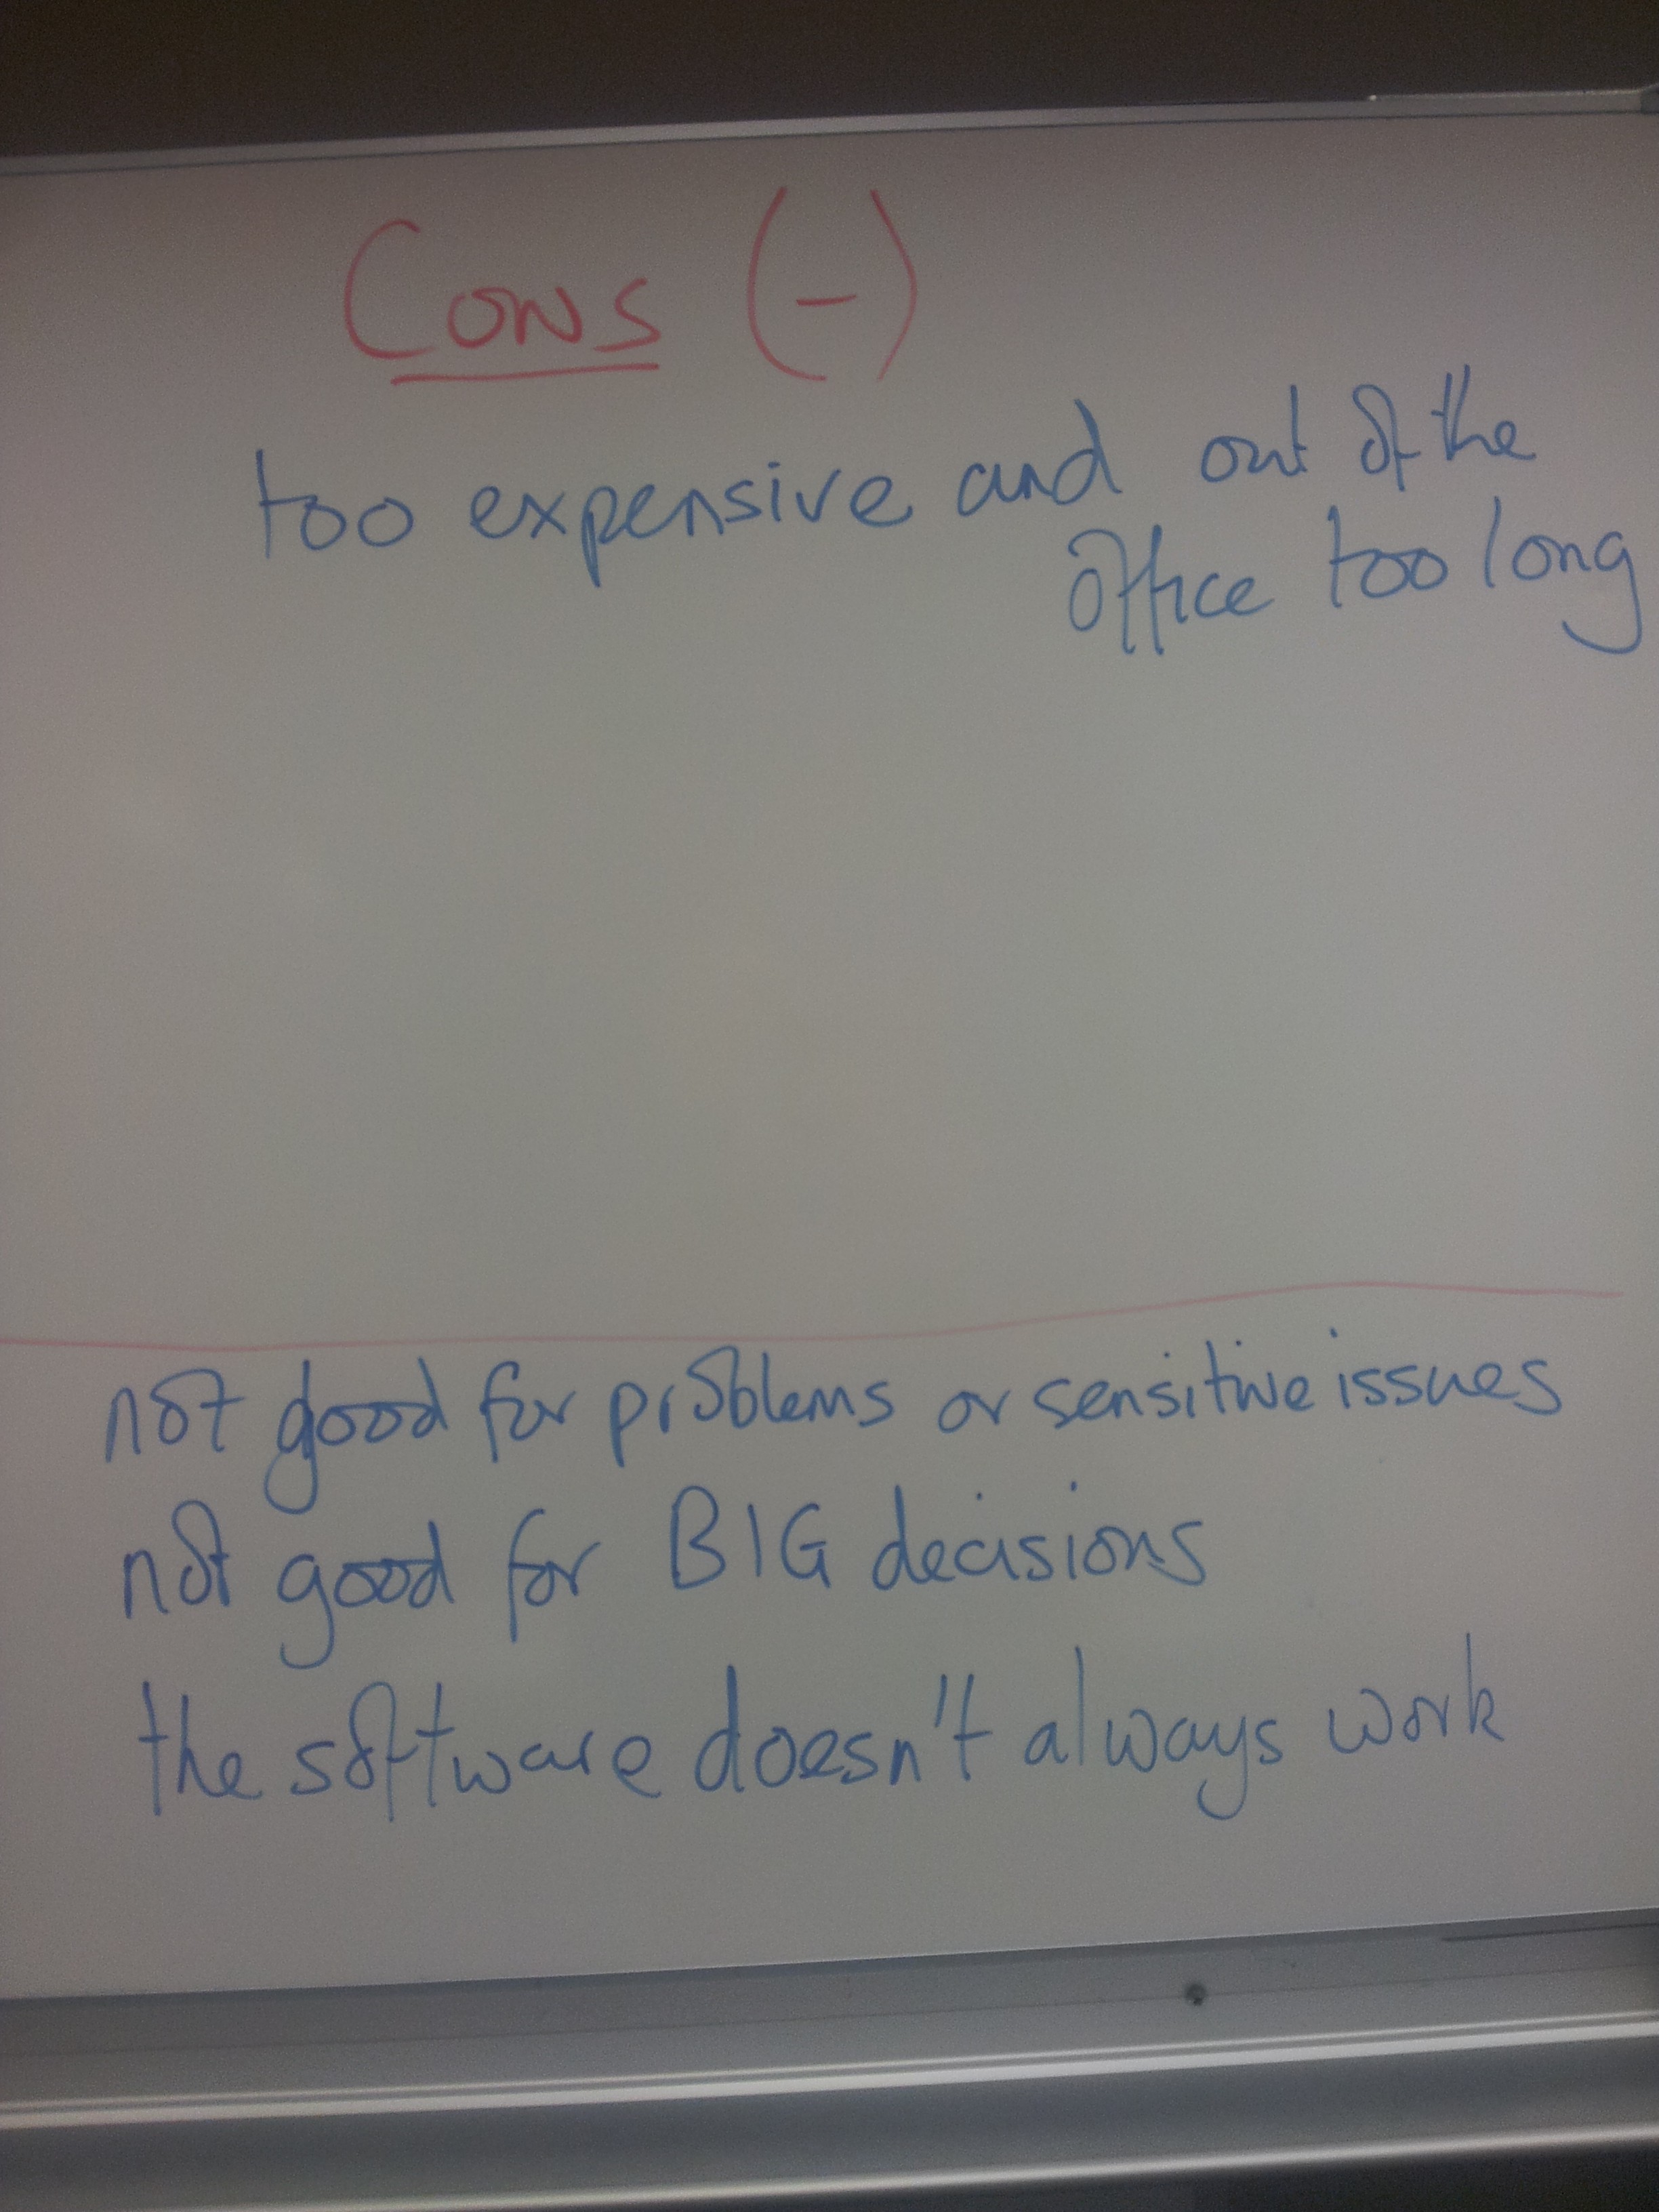 Cons (-)
too expensive and out of the
office too long
not good for problems or sensitive issues
not good for BIG decisions
the software doesn't always work